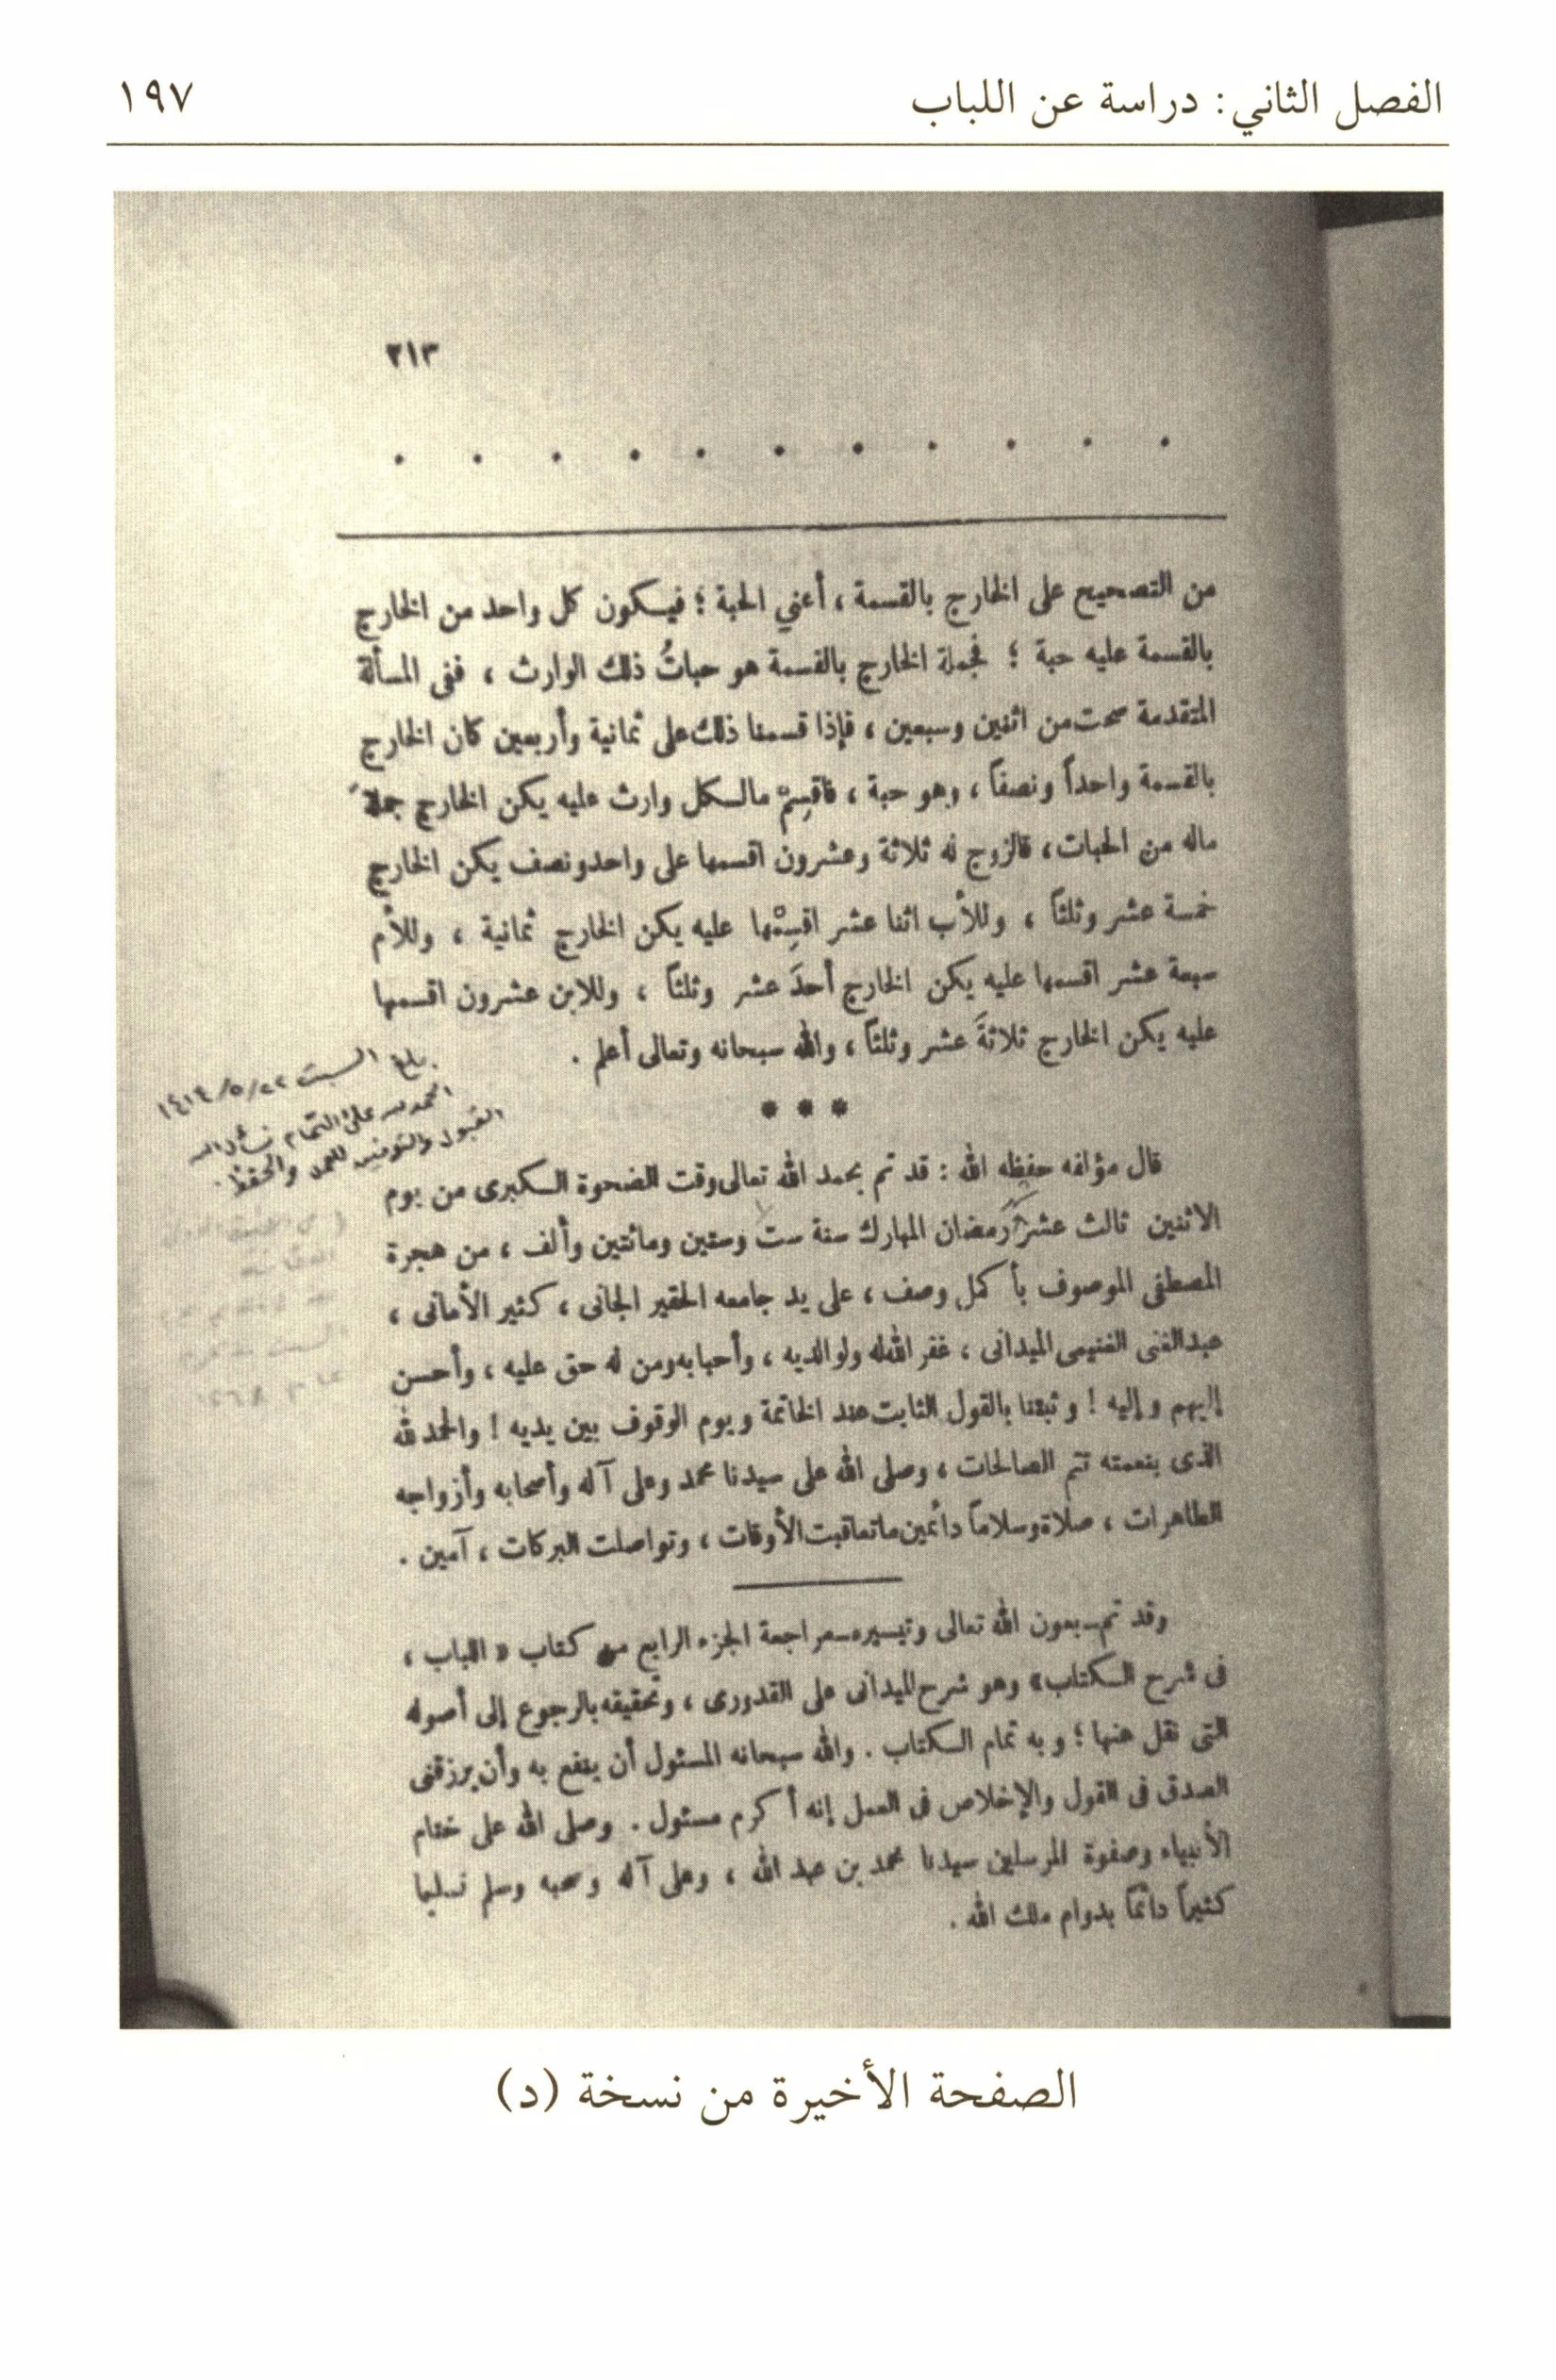 الفصل الثاني: دراسة عن اللباب
١٩٧
٢١٣
. . . . . . . . . . .
من التصحيح على الخارج بالقسمة ، أعني الحبة ؛ فيكون كل واحد من الخارج
بالقسمة عليه حبة ؛ فجملة الخارج بالقسمة هو حباتُ ذلك الوارث ، ففى المسألة
المتقدمة صحت من اثنين وسبعين ، فإذا قسمنا ذلك على ثمانية وأربعين كان الخارج
بالقسمة واحداً ونصفاً ، وهو حبة ، فاقسِمْ مالكل وارث عليه يكن الخارج جملةَ
ماله من الحبات ، فالزوج له ثلاثة وعشرون اقسمها على واحدونصف يكن الخارج
خمسة عشر وثلثاً ، وللأب اثنا عشر اقسِمْها عليه يكن الخارج ثمانية ، وللأم
سبعة عشر اقسمها عليه يكن الخارج أحدَ عشر وثلثاً ، وللابن عشرون اقسمها
عليه يكن الخارج ثلاثةَ عشر وثلثاً ، والله سبحانه وتعالى أعلم .
بلغ السبت ٢٢/٥/١٤١٤
الحمد لله على التمام نسأل الله
القبول والتوفيق للعمل والحفظ .
* * *
قال مؤلفه حفظه الله : قد تم بحمد الله تعالى وقت الضحوة الكبرى من يوم
الاثنين ثالث عشر رمضان المبارك سنة ست وستين ومائتين وألف ، من هجرة
المصطفى الموصوف بأكمل وصف ، على يد جامعه الحقير الجانى ، كثير الأمانى ،
عبدالغنى الغنيمى الميدانى ، غفر الله له ولوالديه ، وأحبابه ومن له حق عليه ، وأحسن
إليهم وإليه ! وثبتنا بالقول الثابت عند الخاتمة ويوم الوقوف بين يديه ! والحمد لله
الذى بنعمته تتم الصالحات ، وصلى الله على سيدنا محمد وعلى آله وأصحابه وأزواجه
الطاهرات ، صلاة وسلاماً دائمين ماتعاقبت الأوقات ، وتواصلت البركات ، آمين .
وقد تم ـ بعون الله تعالى وتيسيره ـ مراجعة الجزء الرابع من كتاب « اللباب ،
فى شرح الكتاب» وهو شرح الميدانى على القدورى ، وتحقيقه بالرجوع إلى أصوله
التى نقل عنها ؛ وبه تمام الكتاب . والله سبحانه المسئول أن ينفع به وأن يرزقنى
الصدق فى القول والإخلاص فى العمل إنه أكرم مسئول . وصلى الله على ختام
الأنبياء وصفوة المرسلين سيدنا محمد بن عبد الله ، وعلى آله وصحبه وسلم تسليما
كثيراً دائماً بدوام ملك الله .
الصفحة الأخيرة من نسخة (د)